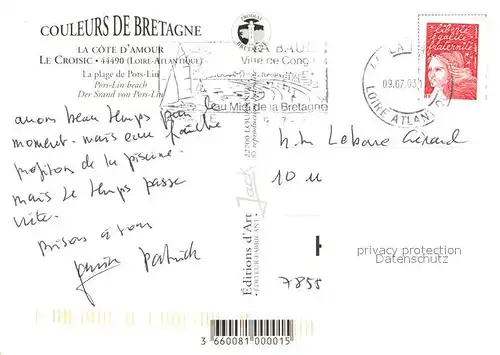 COULEURS DE BRETAGNE
LA CÔTE D'AMOUR
LE CROISIC • 44490 (LOIRE-ATLANTIQUE)
La plage de Pors-Lin
Pors-Lin beach
Der Strand von Pors-Lin
LA BAUL
Ville de Cong
au Midi de la Bretagne
LA
09.07.03
LOIRE ATLANT
liberté
égalité
fraternité
avons beau temps pour le
moment. mais eau fraîche
profitons de la piscine.
mais le temps passe
vite.
Bisous à tous
Patrick
Gérard
10 u
7855
Jack
Editions d'Art
ÉDITEUR-FABRICANT
privacy protection
Datenschutz
3 660081 000015